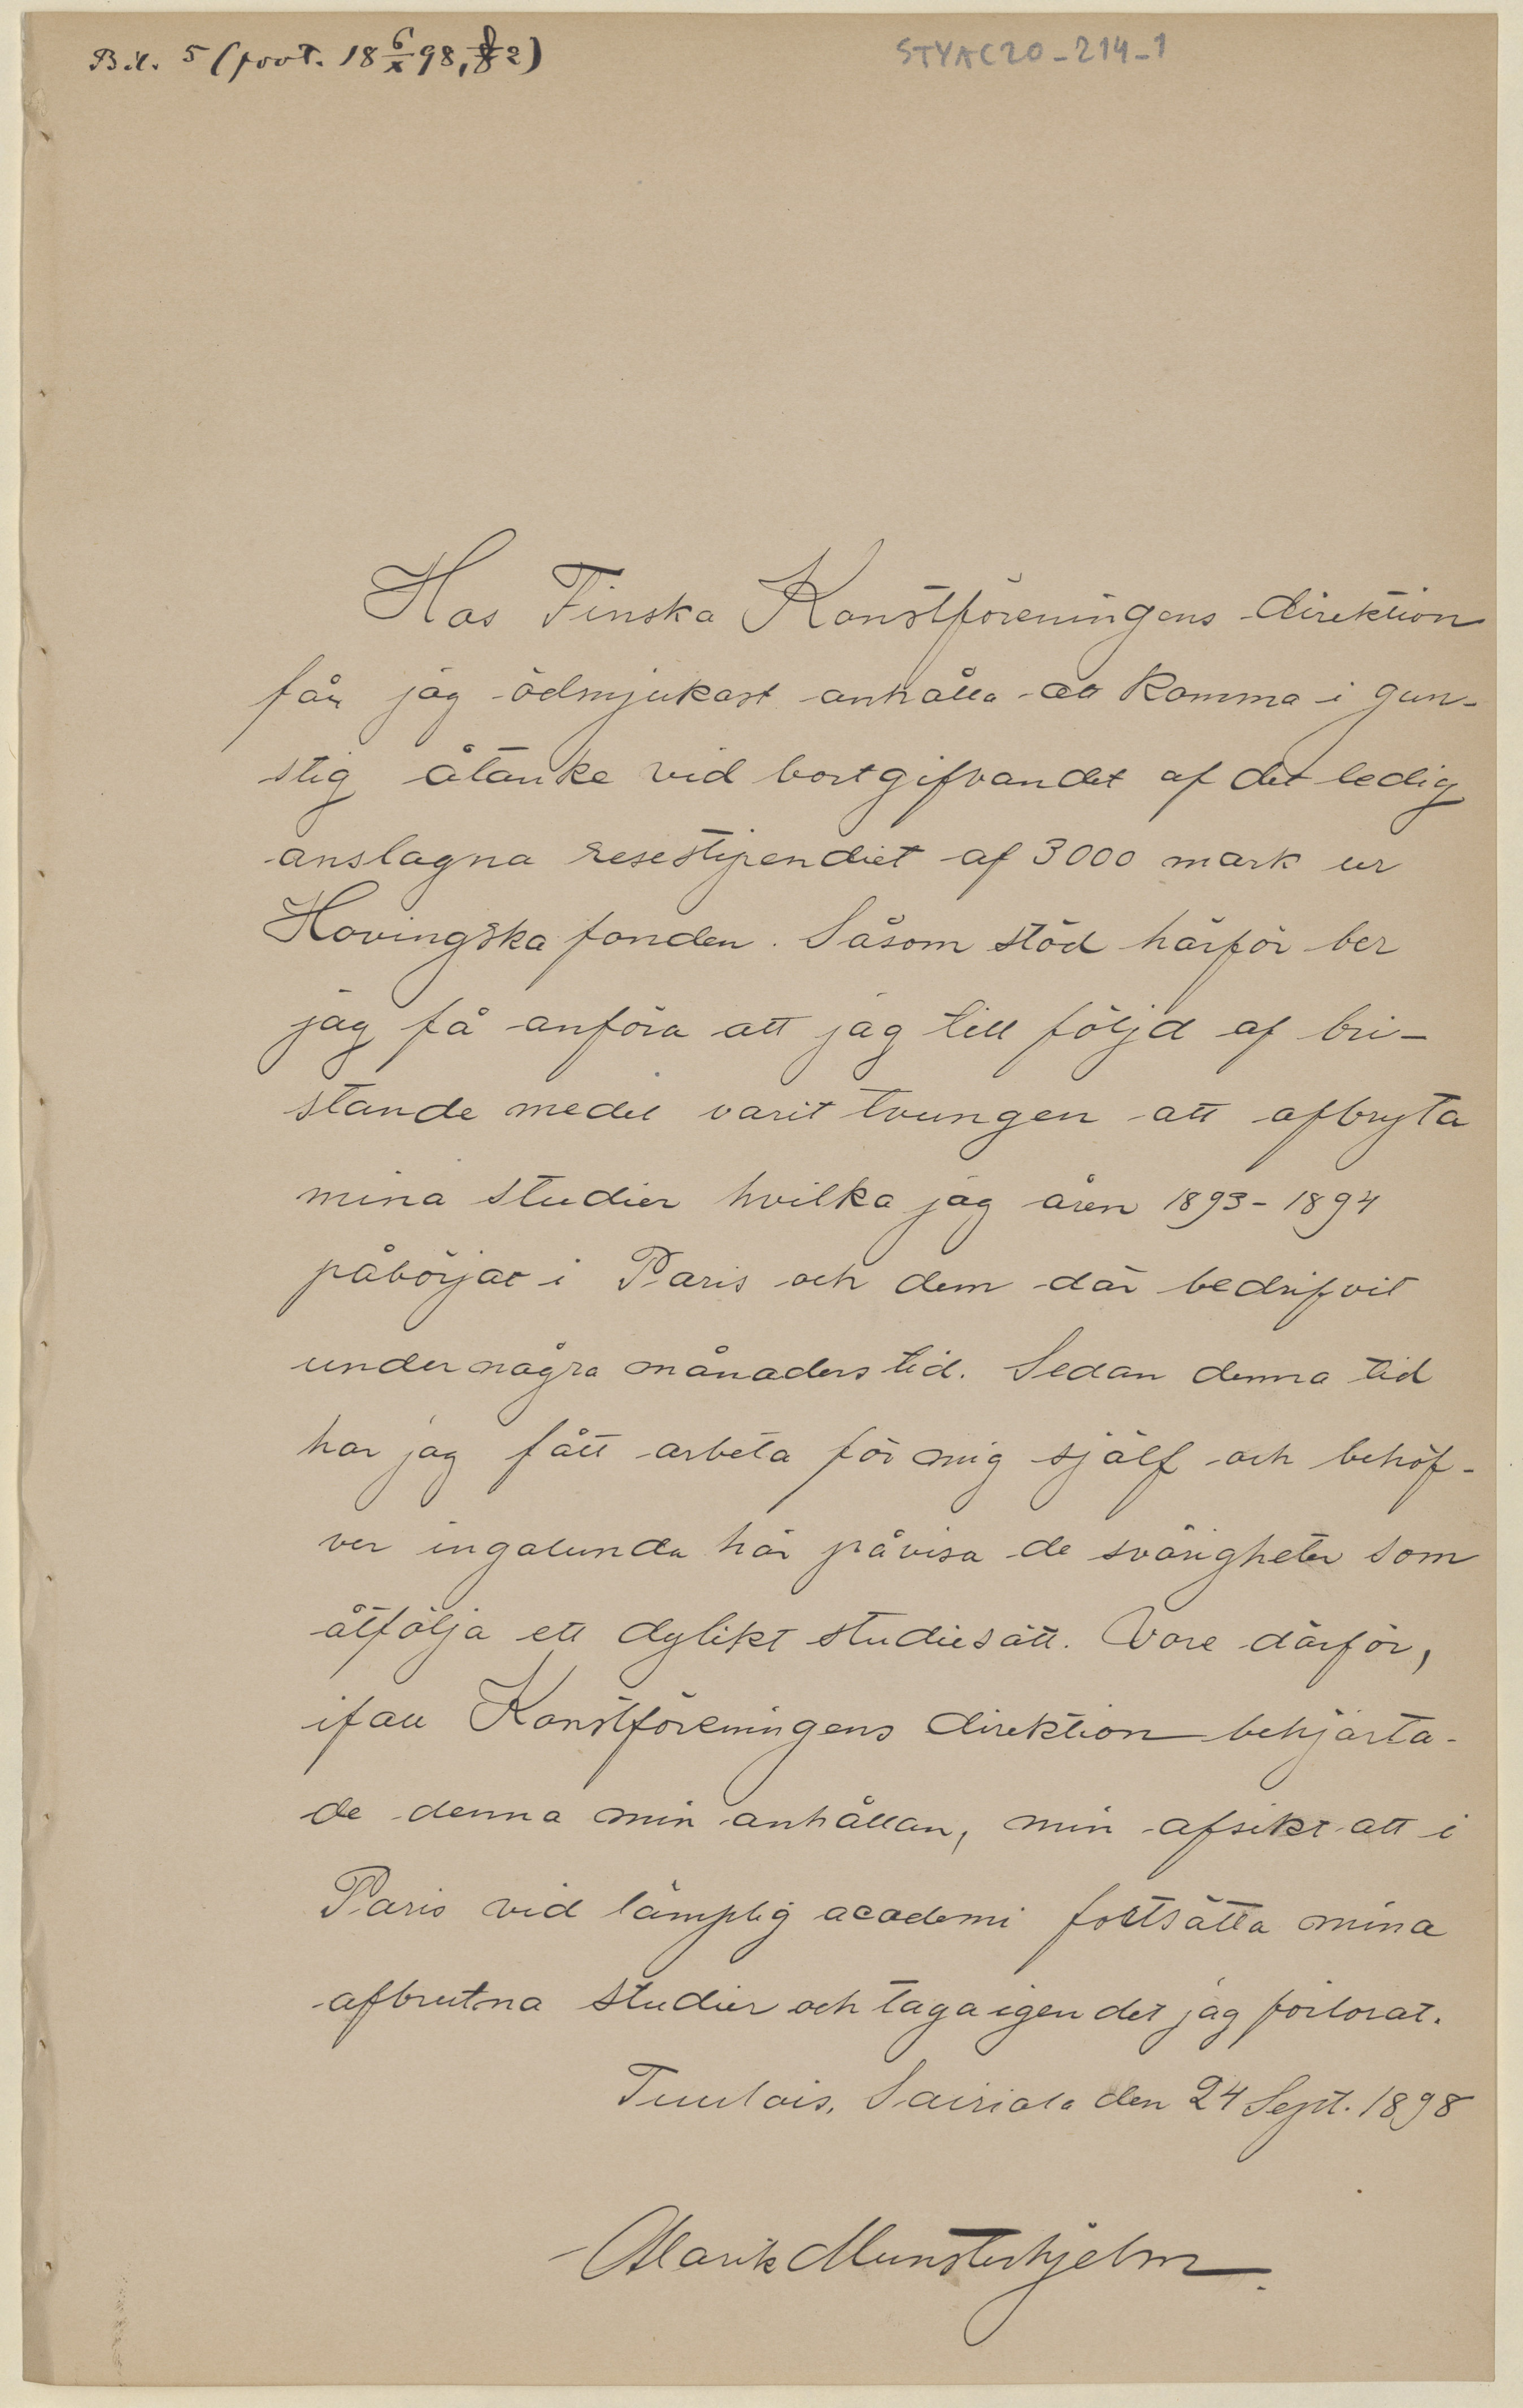 Bil. 5 (prot. 18 6/X 98, § 2)
STYAC20-214-1
Hos Finska Konstföreningens direktion
får jag ödmjukast anhålla att komma i gun-
stig åtanke vid bortgifvandet af det ledig
anslagna resestipendiet af 3000 mark ur
Hovingska fonden. Såsom stöd härför ber
jag få anföra att jag till följd af bri-
stande medel varit tvungen att afbryta
mina studier hvilka jag åren 1893-1894
påbörjat i Paris och dem där bedrifvit
under några månaders tid. Sedan denna tid
har jag fått arbeta för mig själf och behöf-
ver ingalunda här påvisa de svårigheter som
åtfölja ett dylikt studiesätt. Vore därför,
ifall Konstföreningens direktion behjärta-
de denna min anhållan, min afsikt att i
Paris vid lämplig academi fortsätta mina
afbrutna studier och taga igen det jag förlorat.
Tuulois, Sairiala den 24 Sept. 1898
Alarik Munsterhjelm.